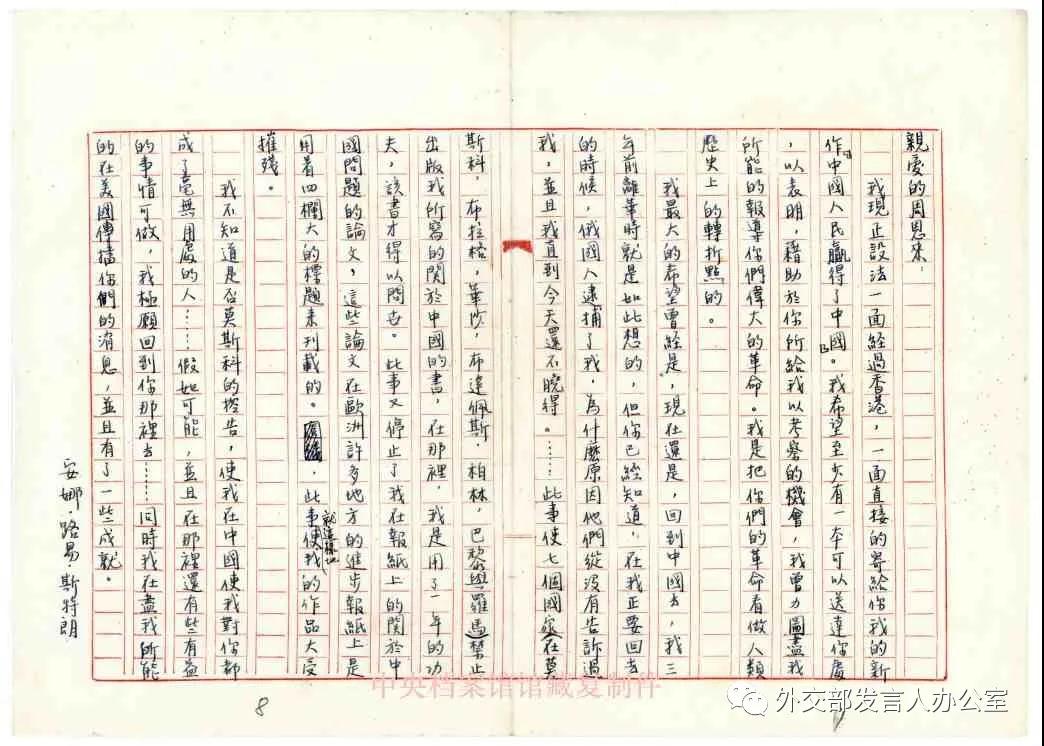 親愛的周恩來:
我現正設法一面經過香港,一面直接的寄給你我的新
作中國人民贏得了中國。我希望至少有一本可以送達你處
,以表明,藉助於你所給我以考察的機會,我曾力圖盡我
所能的報導你們偉大的革命。我是把你們的革命看做人類
歷史上的轉折點的。
我最大的希望曾經是,現在還是,回到中國去,我三
年前離華時就是如此想的,但你已經知道,在我正要回去
的時候,俄國人逮捕了我,為什麼原因他們從沒有告訴過
我,並且我直到今天還不曉得。……此事使七個國家在莫
斯科,布拉格,華沙,布達佩斯,柏林,巴黎與羅馬禁止
出版我所寫的關於中國的書,在那裡,我是用了一年的功
夫,該書才得以問世。此事又停止了我在報紙上的關於中
國問題的論文,這些論文在歐洲許多地方的進步報紙上是
用着四欄大的標題來刊載的。此事就這樣地使我的作品大受
摧殘。
我不知道是否莫斯科的控告,使我在中國使我對你都
成了毫無用處的人……假如可能,並且在那裡還有些有益
的事情可做,我極願回到你那裡去……同時我在盡我所能
的在美國傳播你們的消息,並且有了一些成就。
安娜·路易·斯特朗
8
中央档案馆馆藏复制件
外交部发言人办公室